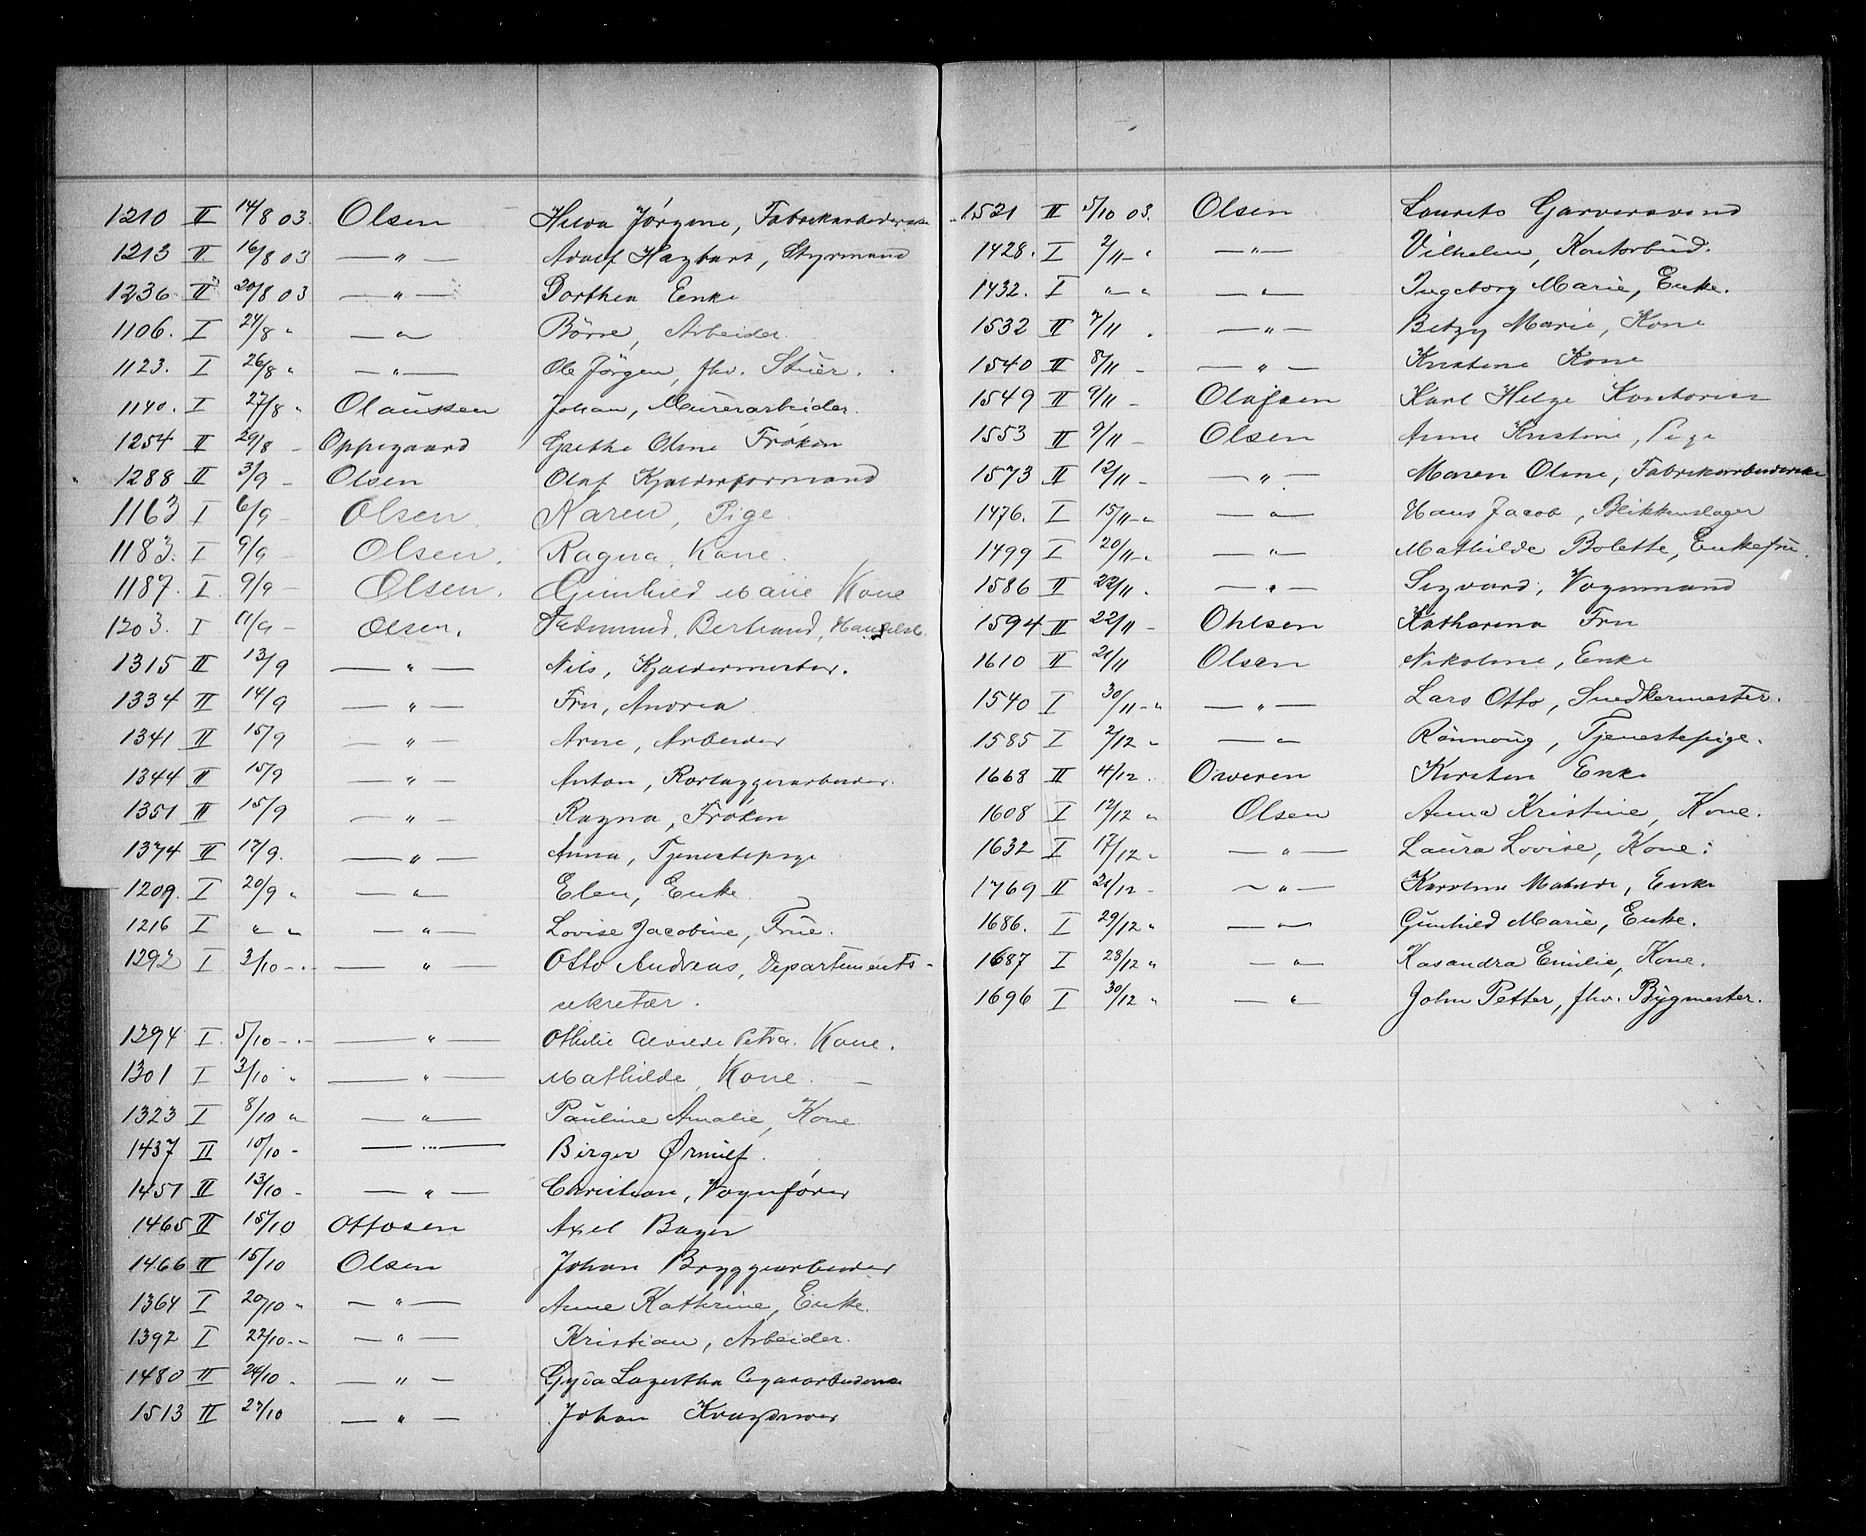 1210 II 14/8 03. Olsen Hilda Jørgine, Fabrikarbeiderske
1213 II 16/8 03 — " — Adolf Hagbart, Styrmand
1236 II 20/8 03 — " — Dorthea Enke
1106. I 24/8 " — " — Börre, Arbeider.
1123. I 26/8 " — " — Ole Jörgen, fhv. Stuer.
1140. I 27/8 " Olaussen Johan, Murerarbeider.
1254 II 29/8 - Oppegaard Grethe Oline Frøken
1288 II 3/9 - Olsen Olaf Kjælderformand
1163 I 6/9 - Olsen Karen, Pige
1183. I 9/9 - Olsen. Ragna, Kone.
1187. I 9/9 - Olsen. Gunhild Marie Kone
1203. I 11/9 - Olsen. Bertrand,
1315 II 13/9 — " — Nils, Kjældermester.
1334 II 14/9 — " — Fru, Andrea
1341 II 15/9 — " — Arne, Arbeider
1344 II 15/9 — " — Anton, Rørlæggerarbeider.
1351 II 15/9 — " — Ragna, Frøken
1374 II 17/9. — " — Anna, Tjenestepige
1209. I 20/9 " — " Elen, Enke.
1216 I " " — " — Lovise Jacobine, Frue.
1292 I 3/10 - . - — " — Otto Andreas, Departements-
sekretær.
1294 I. 5/10 - . - — " — Othilie Alvilde Petra. Kone.
1301 I 3/10 " — " — Mathilde, Kone. —
1323 I 8/10 " — " — Pauline Amalie, Kone
1437 II 10/10 - — " — Birger Ørnulf.
1451 II 13/10 - — " — Christian, Vognfører
1465 II 15/10 Ottosen Axel Bager
1466 II 15/10 Olsen Johan Bryggearbeider
1364 I 20/10 " — " — Anne Kathrine, Enke.
1392 I 22/10 - - — " — Kristian, Arbeider.
1480 II 24/10 - — " — Gyda Lagertha Cigararbeiderske
1513 II 27/10 — " — Johan
1521 II 5/10 03. Olsen Laurits Garversvend
1428. I 2/11 - " — " — Vilhelm, Kontorbud.
1432. I " - " — " — Ingeborg Marie, Enke.
1532 II 7/11 . — " — Betzy Marie, Kone
1540 II 8/11 - — " — Kristine Kone
1549 II 9/11 - Olafsen Karl Helge Kontorist
1553 II 9/11 - Olsen Anne Kristine, Pige
1573 II 12/11 - — " — Maren Oline, Fabrikarbeiderske
1476. I 15/11 - " — " — Hans Jacob, Blikkenslager
1499 I 20/11 - " — " — Mathilde Bolette, Enkefru.
1586 II 22/11 . — " — Sigvard, Vognmand
1594 II 22/11 - Ohlsen Katharina Fru
1610 II 21/11 Olsen Nikoline, Enke
1540 I 30/11 - " — " — Lars Otto, Snedkermester.
1585 I 2/12 " — " Rönnoug, Tjenestepige.
1668 II 4/12 . Kirsten Enke
1608 I 12/12 " Olsen Anna Kristine, Kone.
1632 I 17/12 " — " — Laura Lovise, Kone.
1769 II 21/12 - — " — Karoline Mathilde, Enke
1686. I 29/12 " — " Gunhild Marie, Enke.
1687 I 28/12 " — " — Kasandra Emilie, Kone.
1696 I 30/12 " — " — John Petter, fhv. Bygmester.